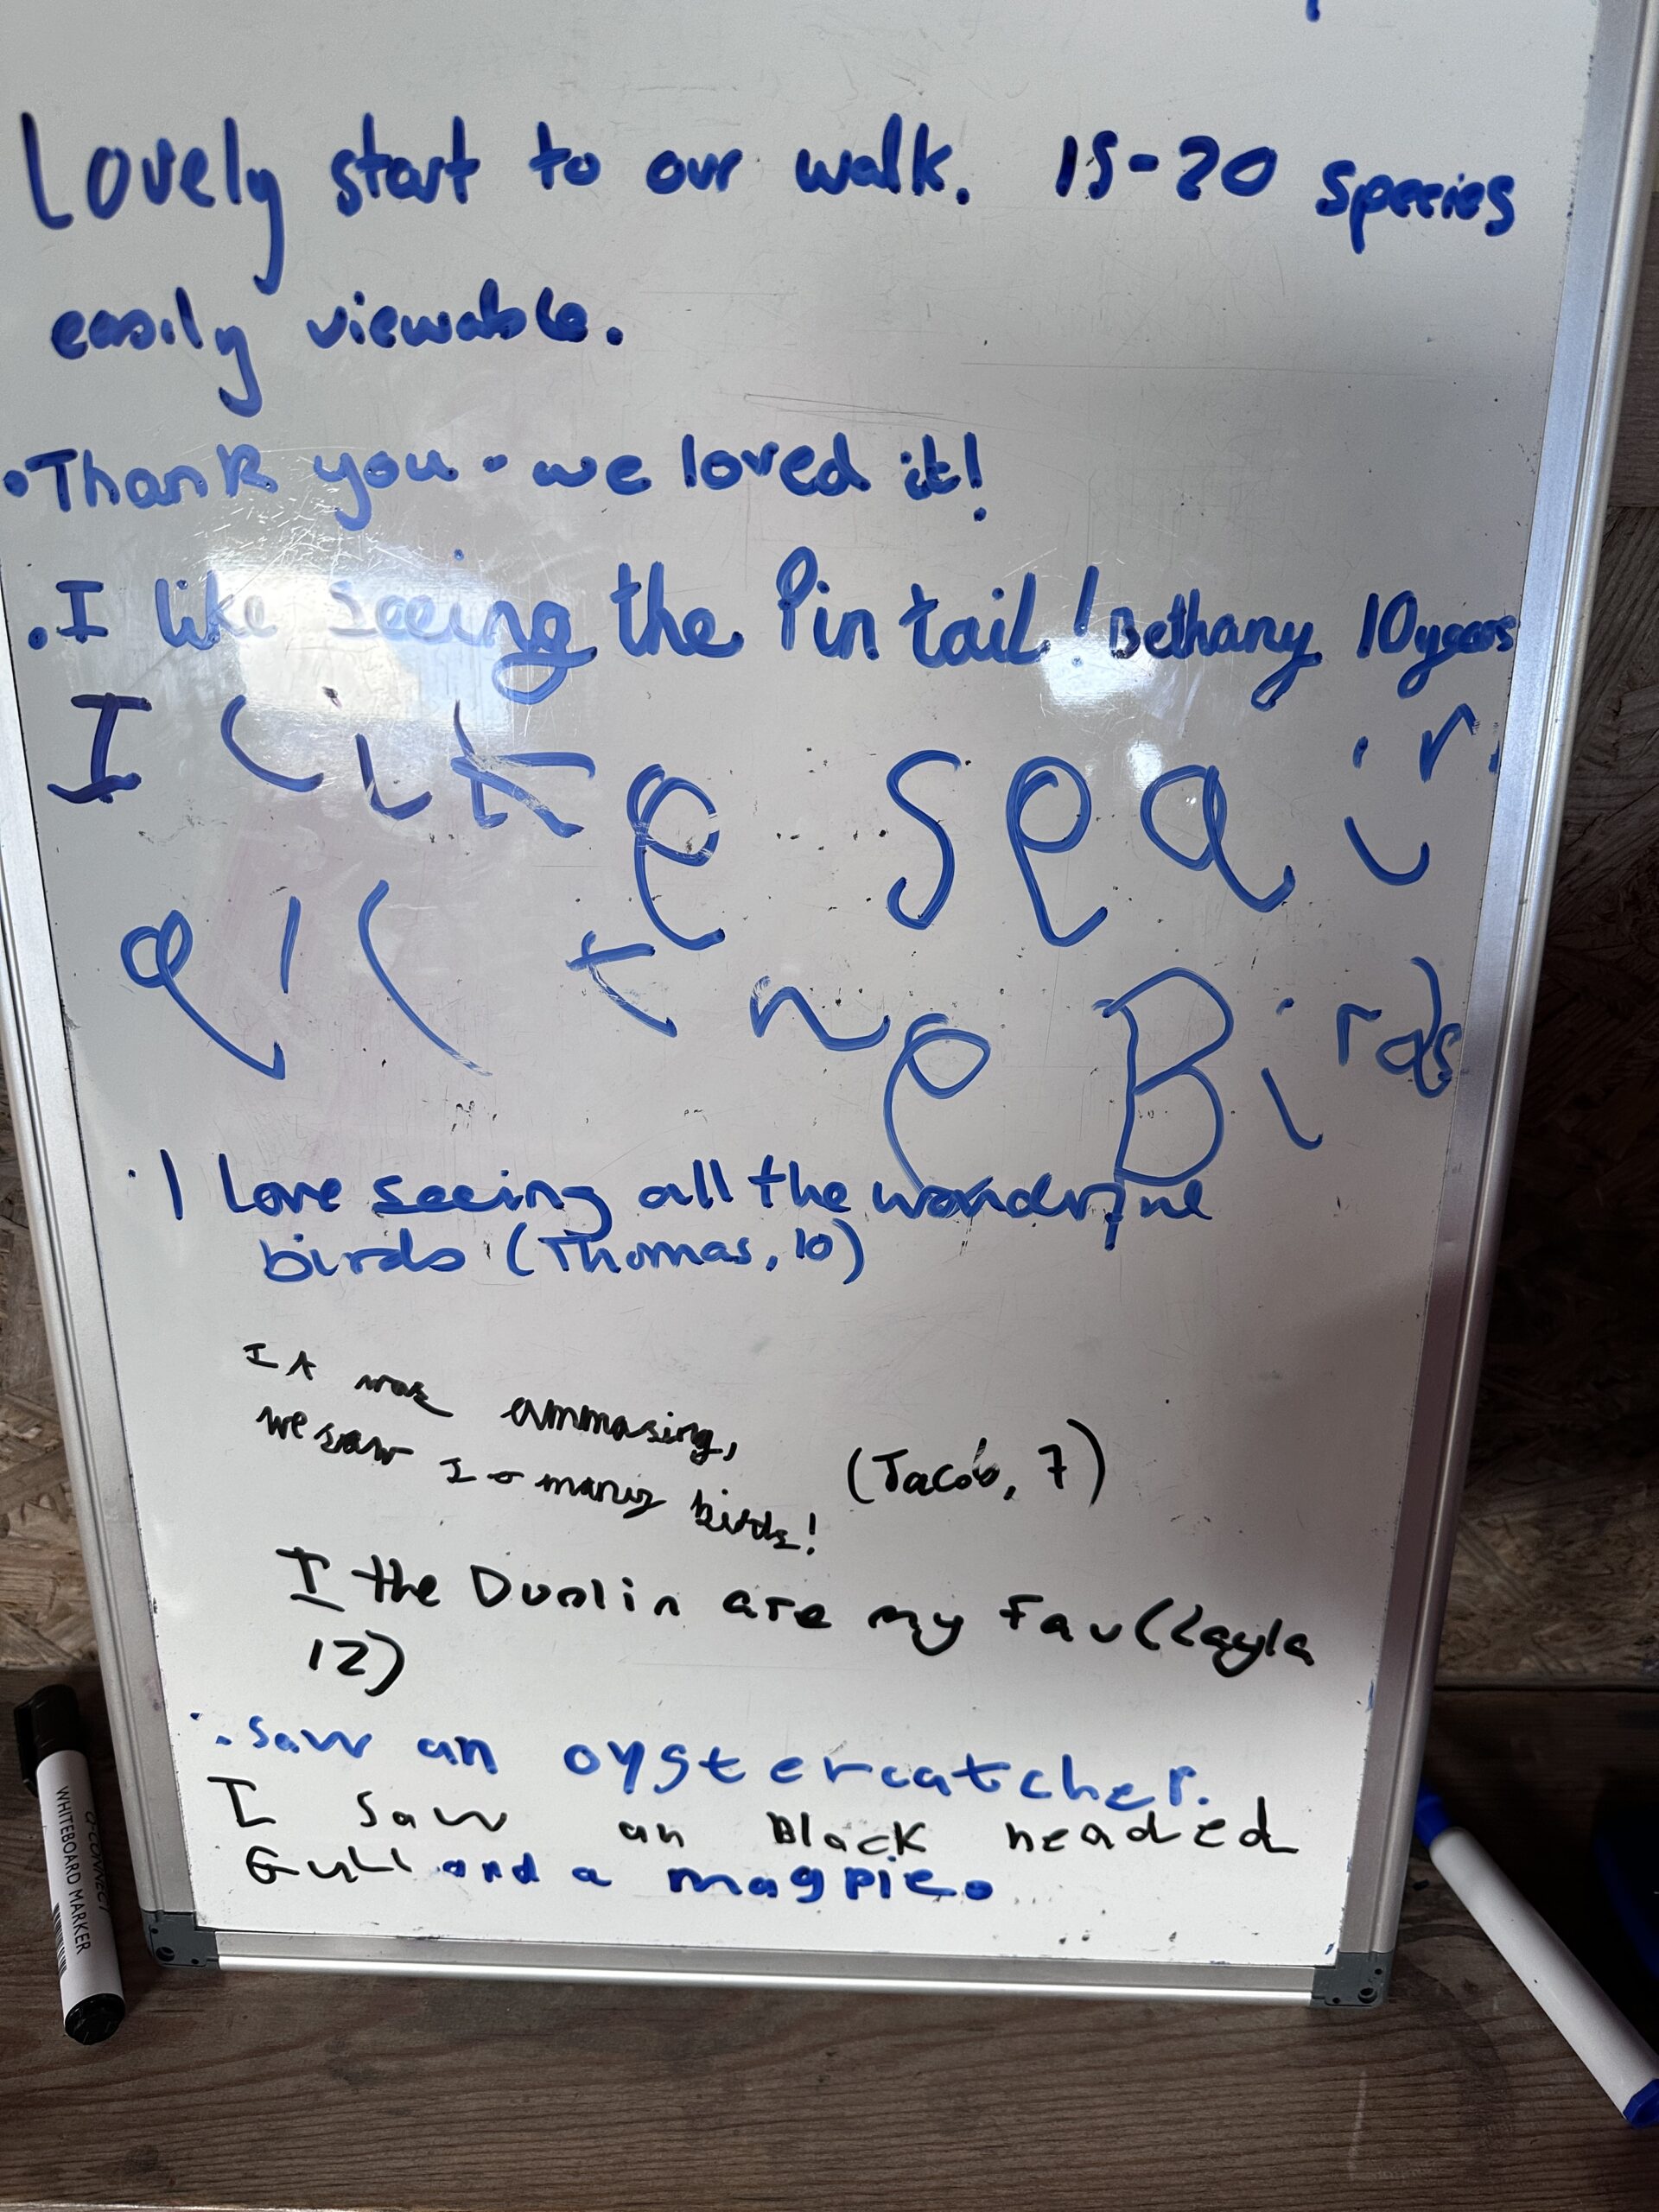 Lovely start to our walk. 15-20 species
easily viewable.
•Thank you - we loved it!
•I like seeing the Pintail! Bethany 10 years
I Like Sea in
all the Birds
•I Love seeing all the
birds (Thomas, 10)
It was ammasing,
we saw so many birds!
(Jacob, 7)
I the Dunlin are my Fav (Layla
12)
•saw an oystercatcher.
I saw an Black headed
Gull and a magpie.
WHITEBOARD MARKER